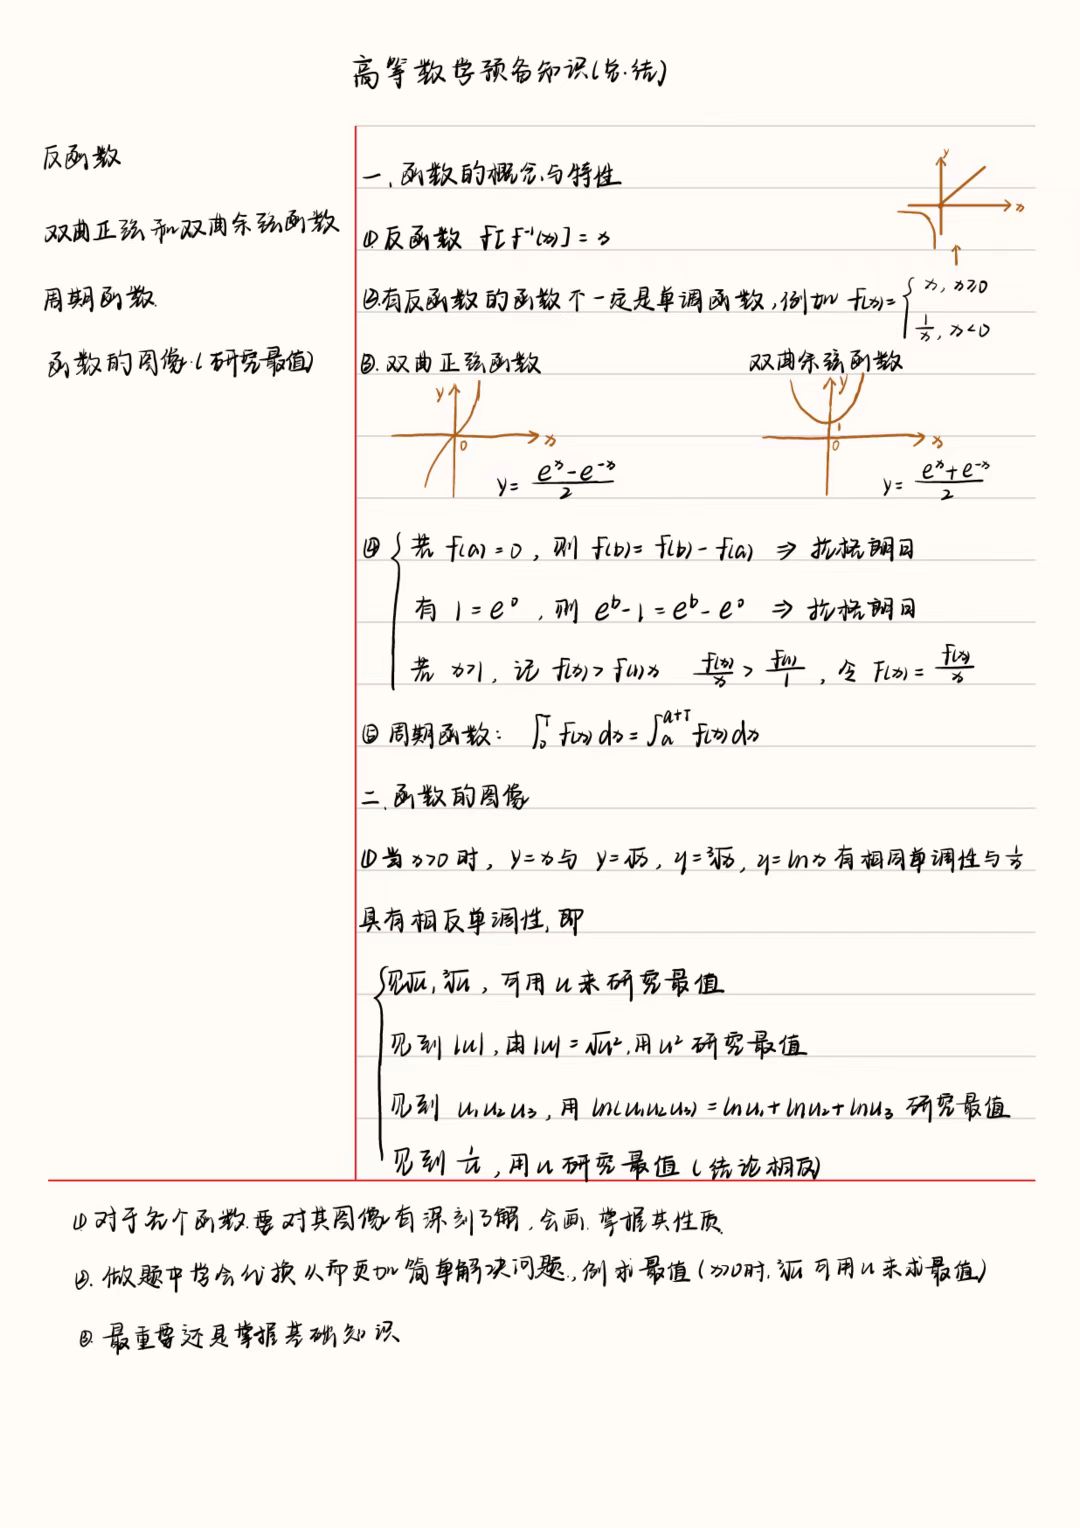 高等数学预备知识(总结)
反函数
双曲正弦和双曲余弦函数
周期函数.
函数的图像.(研究最值)
一、函数的概念与特性
① 反函数 f[f⁻¹(x)] = x
②有反函数的函数不一定是单调函数,例如 f(x)= { x, x≥0
1/x, x<0
y
x
③. 双曲正弦函数 双曲余弦函数
y x 0 y x 0 1
y = (eˣ-e⁻ˣ)/2 y = (eˣ+e⁻ˣ)/2
④ { 若 f(a)=0, 则 f(b)= f(b)-f(a) ⇒ 拉格朗日
有 1=e⁰, 则 eᵇ-1=eᵇ-e⁰ ⇒ 拉格朗日
若 x>1, 记 f(x)>f(1)x f(x)/x > f(1)/1, 令 F(x)= f(x)/x
⑤ 周期函数: ∫₀ᵀ f(x)dx = ∫ₐᵃ⁺ᵀ f(x)dx
二、函数的图像
①当 x>0 时, y=x 与 y=√x, y=³√x, y=lnx 有相同单调性与 1/x
具有相反单调性, 即
{ 见√u, ³√u, 可用 u 来研究最值
见到 |u|, 由 |u|=√u², 用 u² 研究最值
见到 u₁u₂u₃, 用 ln(u₁u₂u₃)=lnu₁+lnu₂+lnu₃ 研究最值
见到 1/u, 用 u 研究最值 (结论相反)
① 对于每个函数.要对其图像有深刻了解, 会画. 掌握其性质
②. 做题中学会代换从而更加简单解决问题., 例求最值(x>0时. ³√u 可用 u 来求最值)
③. 最重要还是掌握基础知识